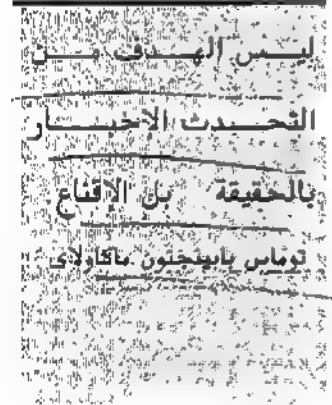 ليس الهدف من
التحدث الإخبار
بالحقيقة بل الإقناع
توماس بابينجتون ماكاولاى